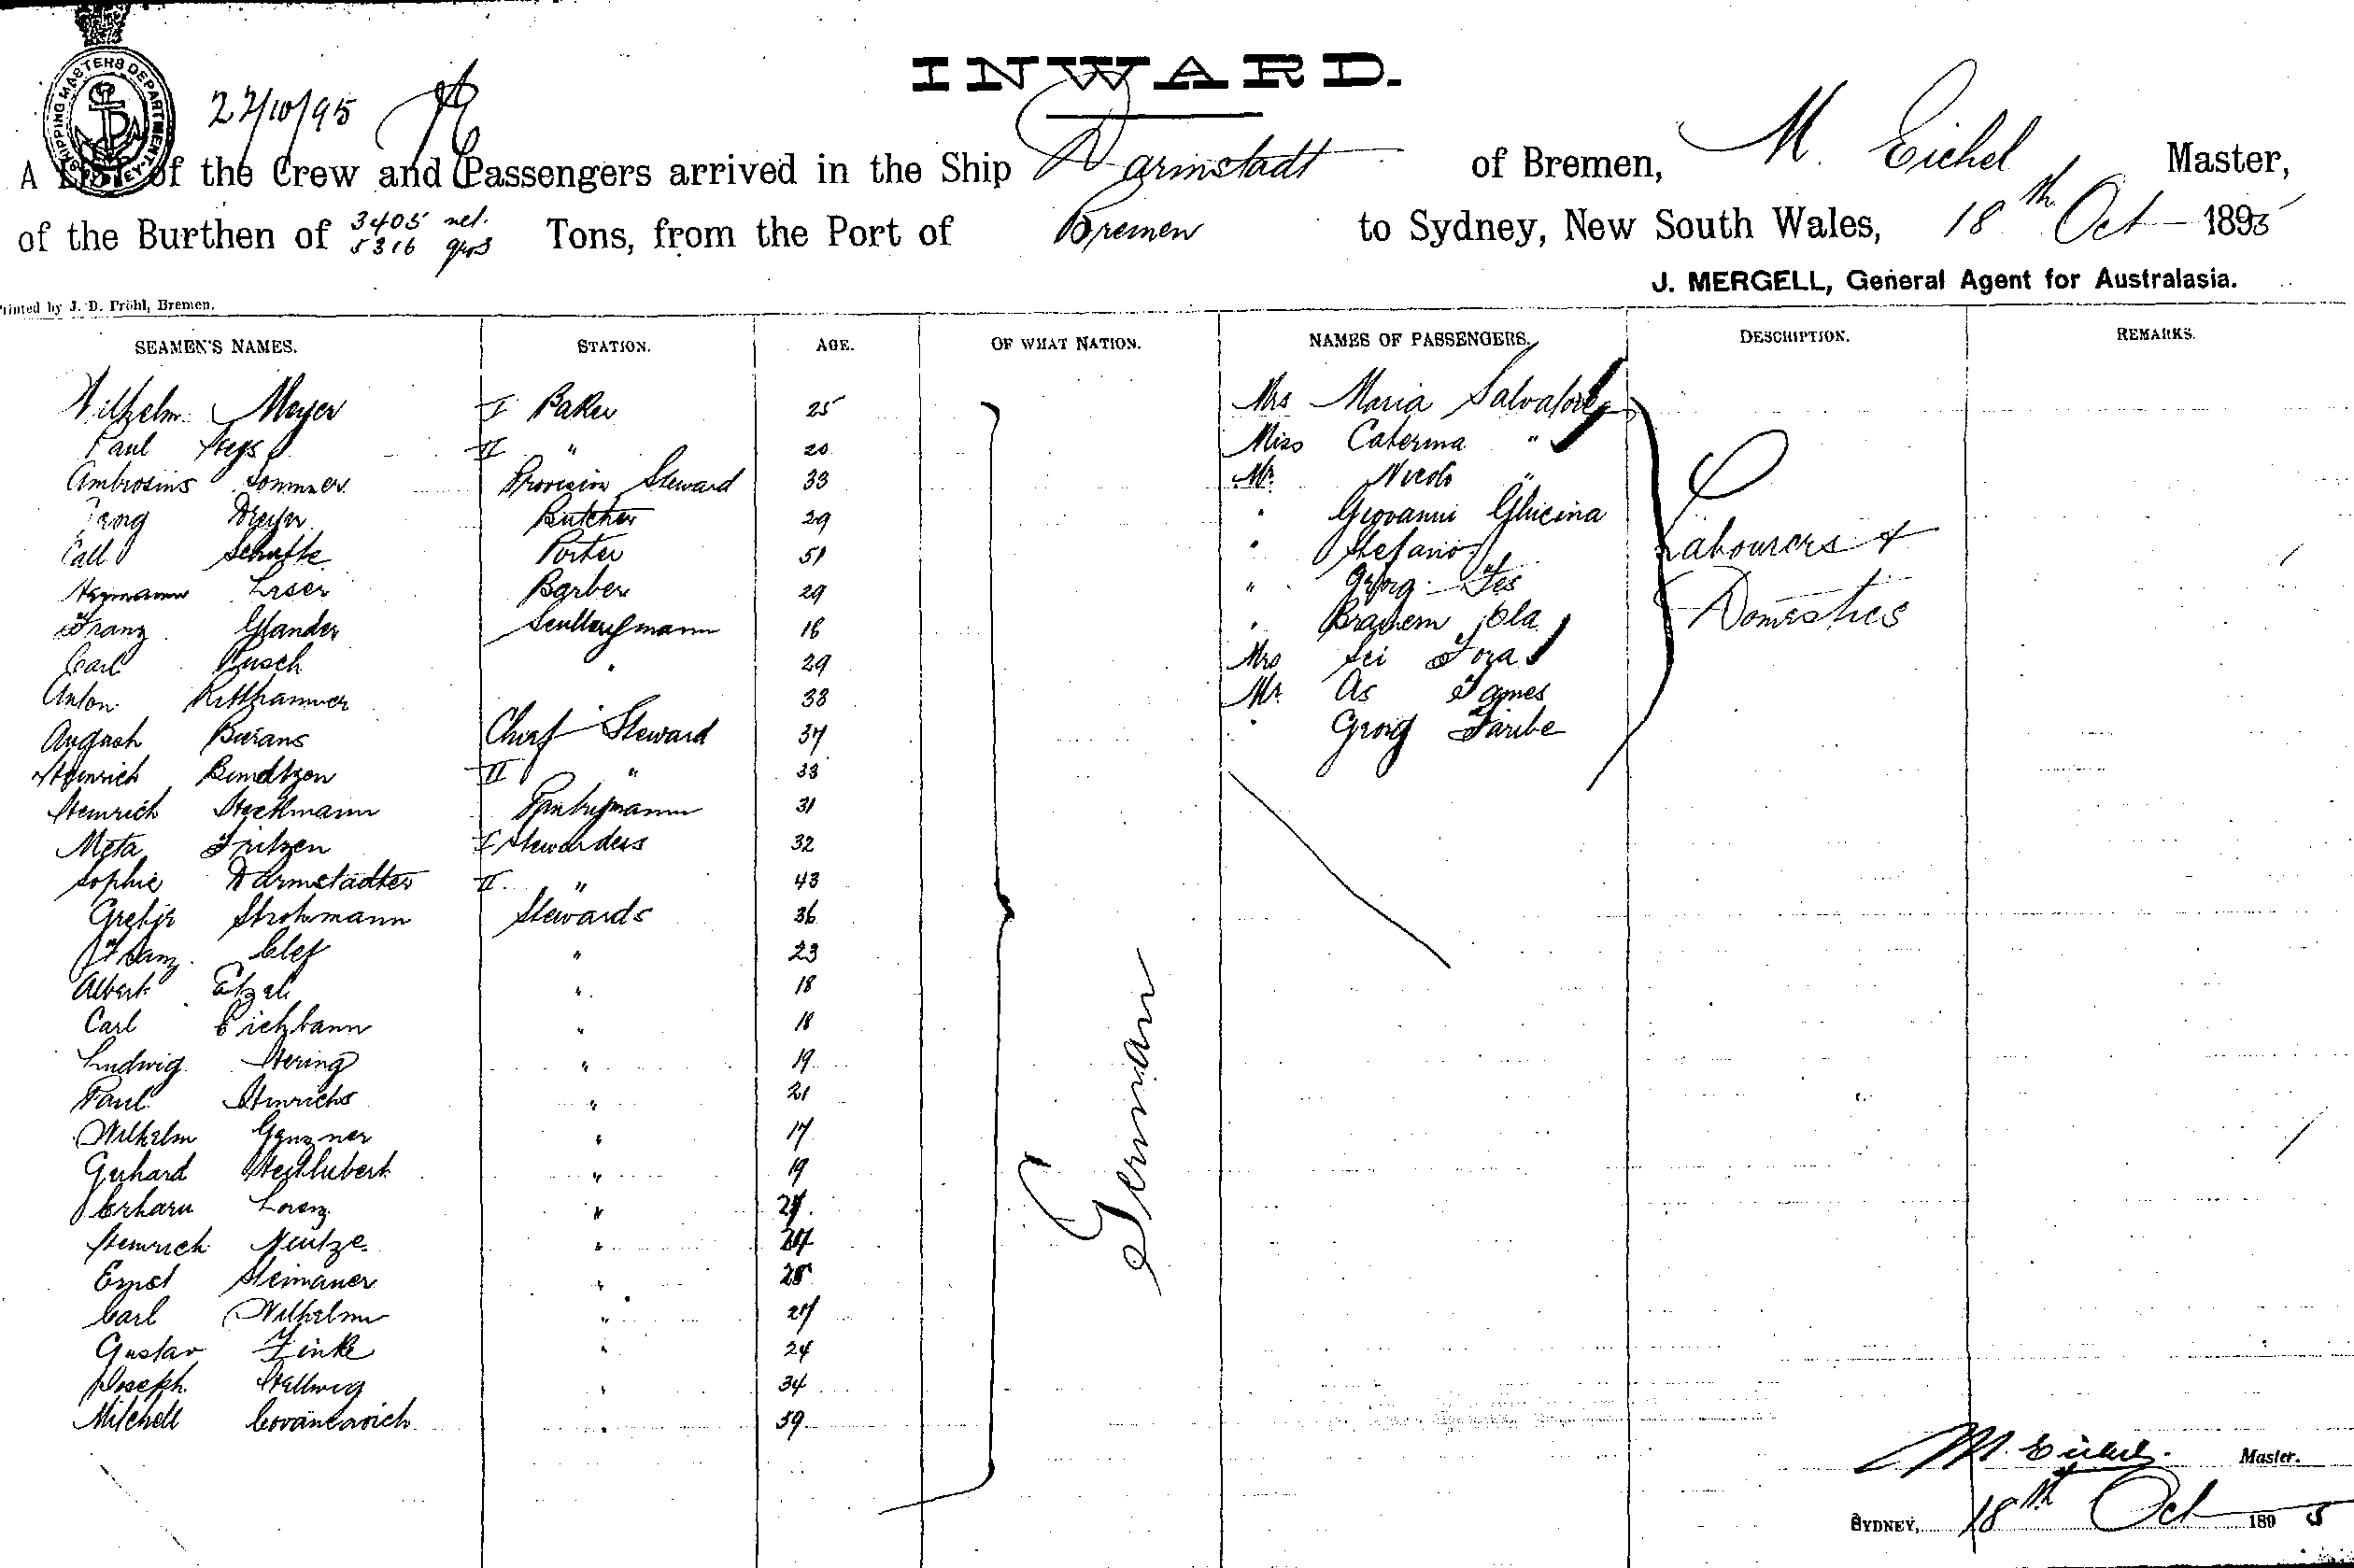 INWARD.
SHIPPING MASTERS DEPARTMENT. SYDNEY.
22/10/95
A List of the Crew and Passengers arrived in the Ship Darmstadt of Bremen, M. Eichel Master,
of the Burthen of 3405 net. 5316 gros Tons, from the Port of Bremen to Sydney, New South Wales, 18th Oct 1895
J. MERGELL, General Agent for Australasia.
Printed by J. D. Fröhl, Bremen.
SEAMEN'S NAMES. STATION. AGE. OF WHAT NATION. NAMES OF PASSENGERS. DESCRIPTION. REMARKS.
Wilhelm Meyer I Baker 25 Mrs Maria Salvatore
Paul II " 20 Miss Caterina "
Ambrosius Sommer Provision Steward 33 Mr. "
Georg Dreyer Butcher 29 " Giovanni Ghicina
Call Schutte Porter 51 " Stefano
Hermann Laser Barber 29 " Georg Fes
Franz Glander 16 "
Carl Pusch " 29 Mrs
Anton 38 Mr. As James
August Burans Chief Steward 37 " Georg Faribe
Heinrich Bendtzen II " 33
Heinrich Steckmann 31
Meta Fritzen I Stewardess 32
Sophie Darmstadter II " 43
Gretje Strohmann Stewards 36
Franz Clef " 23
Albert Etzel " 18
Carl Eichbaum " 18
Ludwig Hering " 19
Paul Hinrichs " 21
Wilhelm Genzner " 17
Gerhard " 19
Lorenz "
Heinrich Neutze " 24
Ernst Steimauer " 25
Carl Wilhelm " 27
Gustav Finke " 24
Joseph Hellwig " 34
Mitchell Covancovich " 59
German
Labourers &
Domestics
M. Eichel. Master.
SYDNEY, 18th Oct 1895